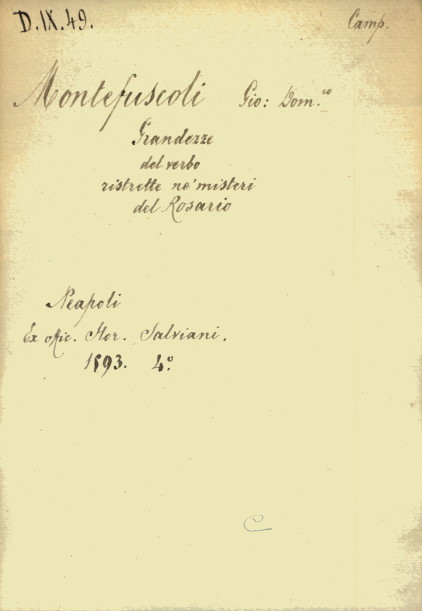 D.IX.49. Camp.
Montefuscoli Gio: Dom.co
Grandezze
del verbo
ristrette ne' misteri
del Rosario
Neapoli
Ex offic. Hor. Salviani.
1593. 4.o
C